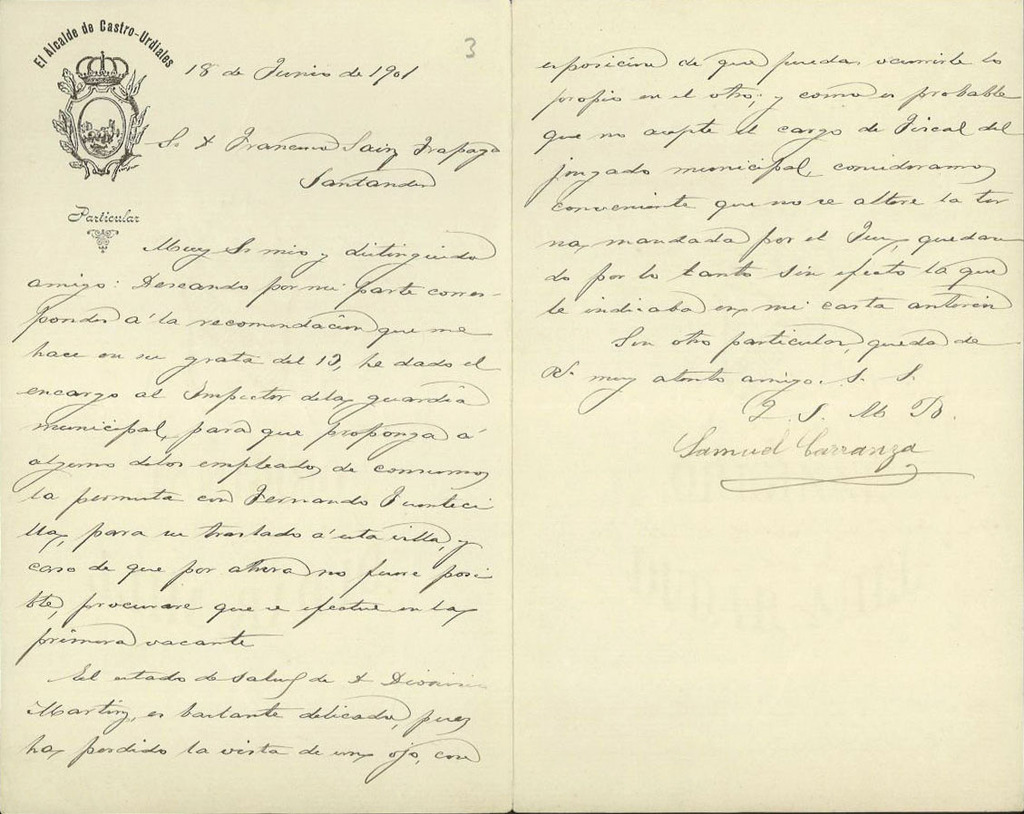 El Alcalde de Castro-Urdiales
3
18 de Junio de 1901
Sr D Francisco Sainz Trapaga
Santander
Particular
Muy Sr mio y distinguido
amigo: Deseando por mi parte corres-
ponder á la recomendación que me
hace en su grata del 13, he dado el
encargo al Inspector de la guardia
municipal, para que proponga á
alguno de los empleados de consumos
la permuta con Fernando Fuenteci
lla, para su traslado á esta villa, y
caso de que por ahora no fuere posi
ble, procurare que se efectue en la
primera vacante
El estado de salud de D Dionisio
Martinz, es bastante delicado, pues
ha perdido la vista de un ojo, con
esposición de que pueda ocurrirle lo
propio en el otro; y como es probable
que no acepte el cargo de Fiscal del
juzgado municipal, consideramos
conveniente que no se altere la ter
na mandada por el Juez, quedan
do por lo tanto sin efecto la que
le indicaba en mi carta anterior
Sin otro particular, queda de
V. muy atento amigo. S. S.
Q. S. M. B.
Samuel Carranza